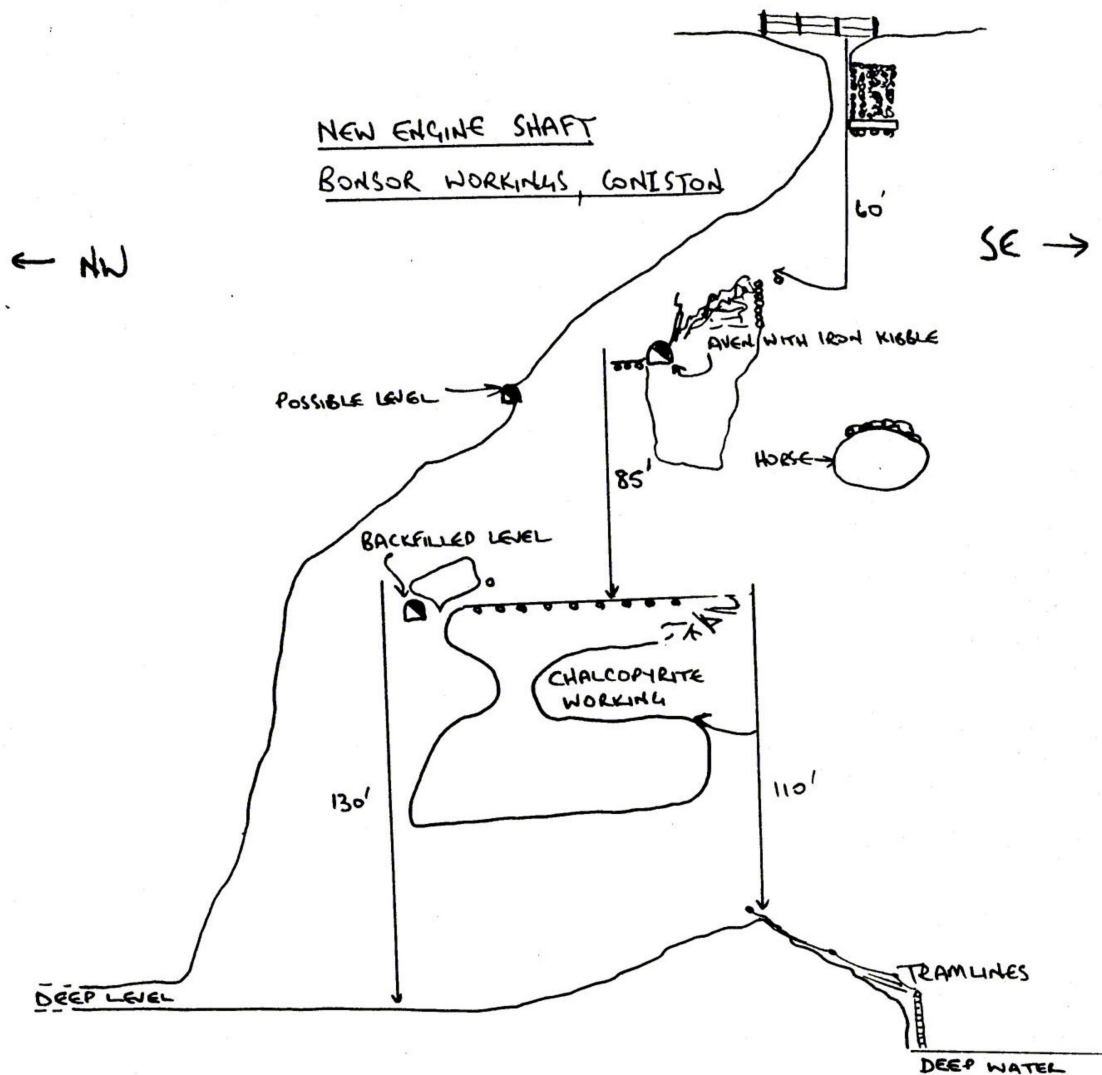 NEW ENGINE SHAFT
BONSOR WORKINGS, CONISTON
← NW
SE →
60'
AVEN WITH IRON KIBBLE
POSSIBLE LEVEL
HORSE
85'
BACKFILLED LEVEL
CHALCOPYRITE
WORKING
130'
110'
TRAMLINES
DEEP LEVEL
DEEP WATER